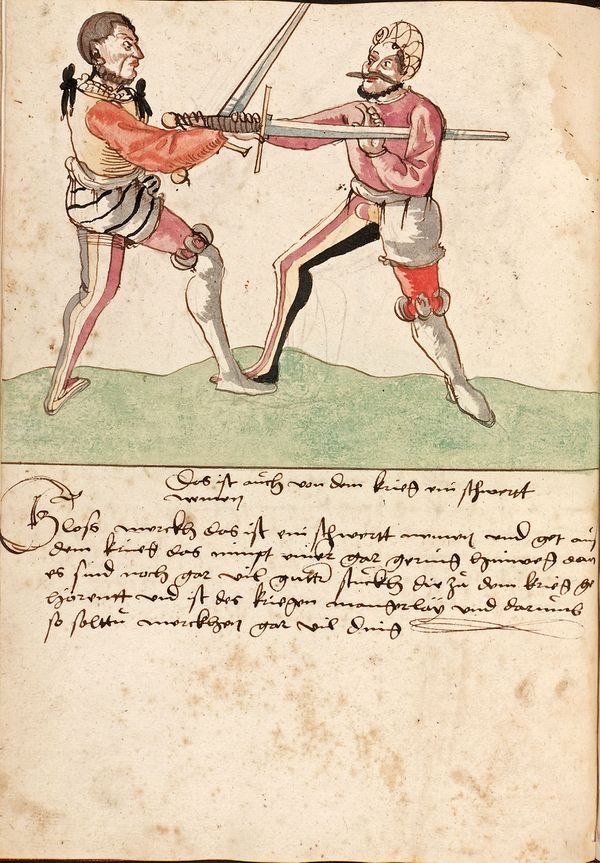 Das ist auch von dem krieg ein schwertt
nemen
Gloss merckh das ist ein schwertt nemen und get aus
dem krieg das nimpt einer gar gering hinweg dan
es sind noch gar vil gutter stuckh die zu dem krieg ge
hörentt und ist des kriegen mangerlay und darumb
so solttu merckhen gar vil ding